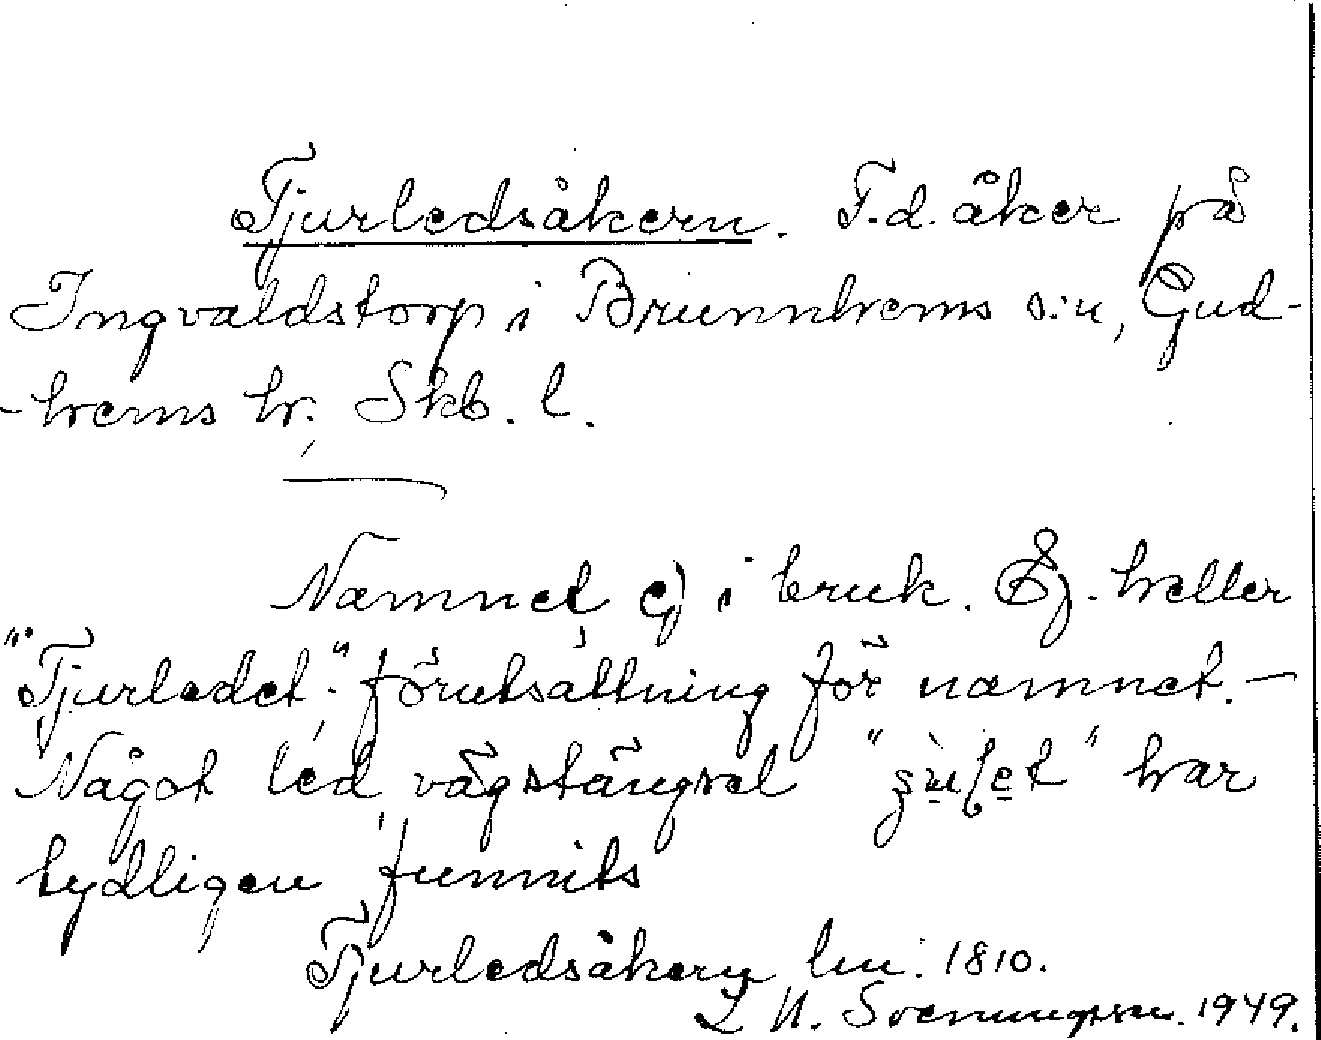 Tjurledsåkern. F.d. åker på
Ingvaldstorp i Brunnhems s:n, Gud-
-hems hr. Skb. l.
Namnet ej i bruk. Ej heller
"Tjurledet" förutsättning för namnet. –
Något led, vägstängsel " " har
tydligen funnits
Tjurledsåkern lm. 1810.
L N. Svenungsson. 1949.